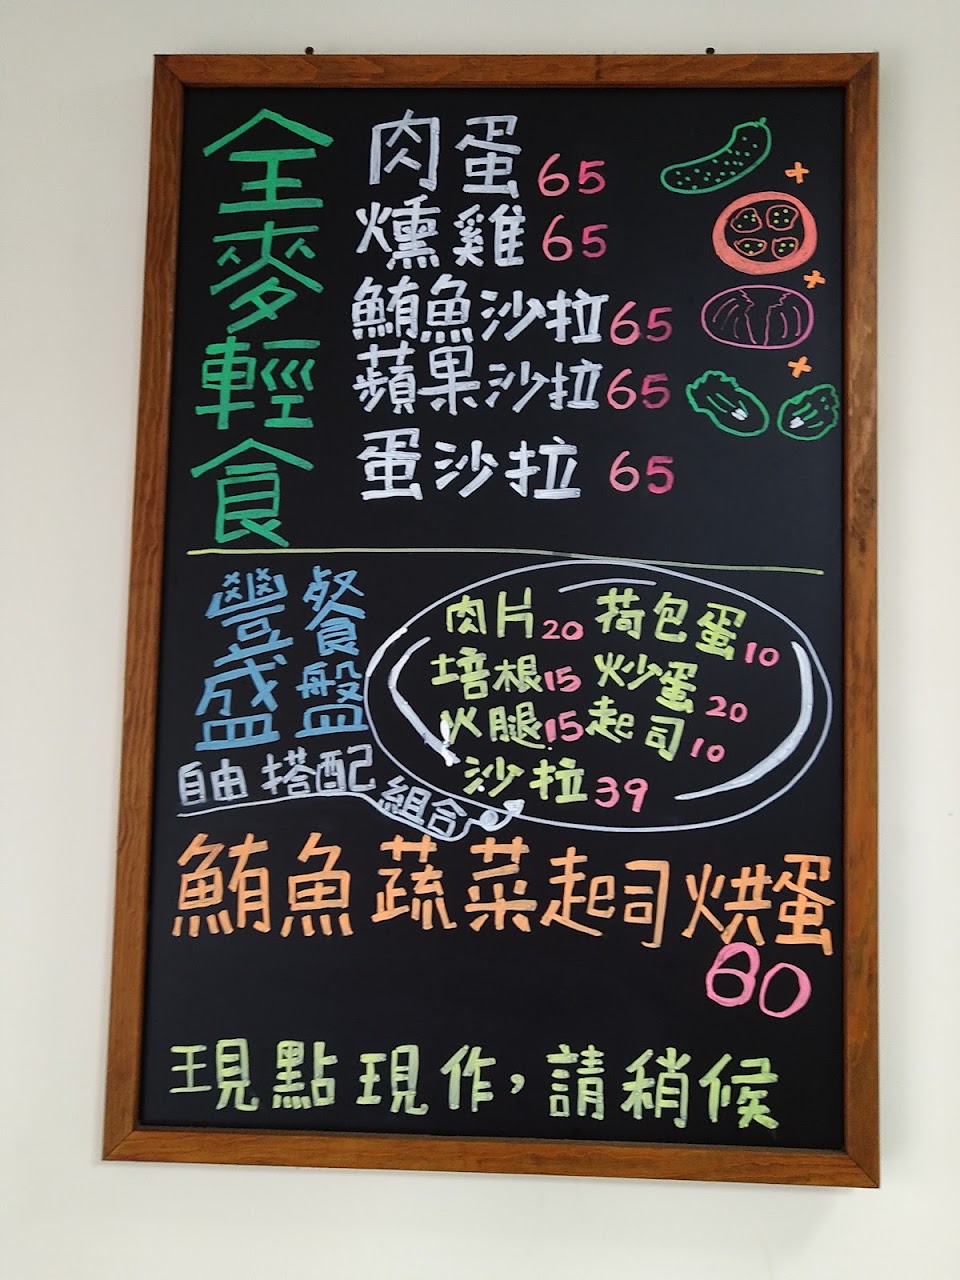 全麥輕食
肉蛋 65
燻雞 65
鮪魚沙拉 65
蘋果沙拉 65
蛋沙拉 65
豐盛
餐盤
自由搭配組合
肉片20 荷包蛋10
培根15 炒蛋20
火腿15 起司10
沙拉39
鮪魚蔬菜起司烘蛋
60
現點現作,請稍候